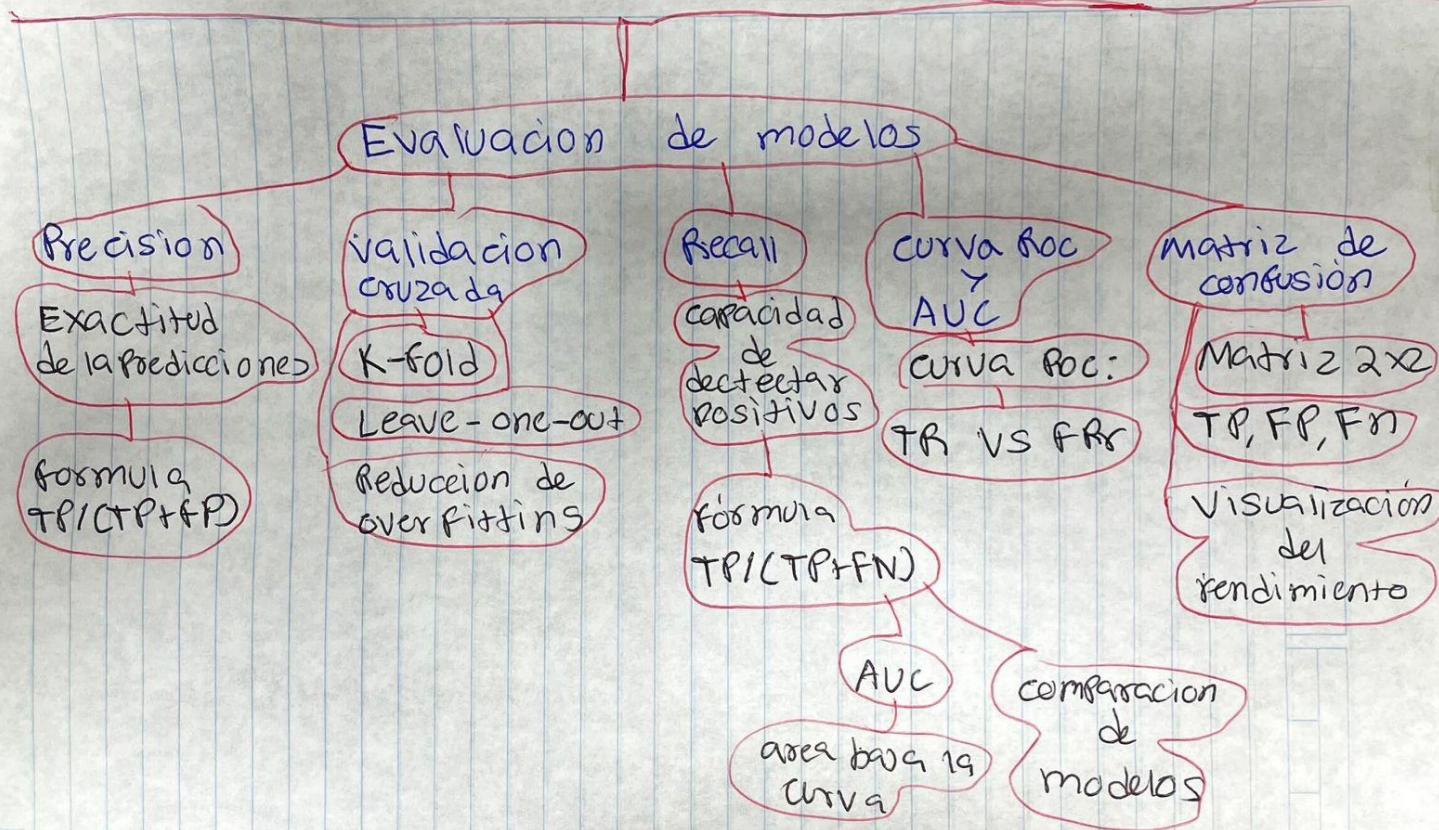 Evaluacion de modelos
Precision
Exactitud
de la Predicciones
formula
TP/(TP+FP)
validacion
cruzada
K-fold
Leave-one-out
Reduccion de
overfitting
Recall
capacidad
de
dectectar
positivos
fórmula
TP/(TP+FN)
AUC
area baja la
curva
comparacion
de
modelos
curva ROC
y
AUC
curva ROC:
TR VS FRr
matriz de
confusión
Matriz 2x2
TP, FP, Fn
visualización
del
rendimiento